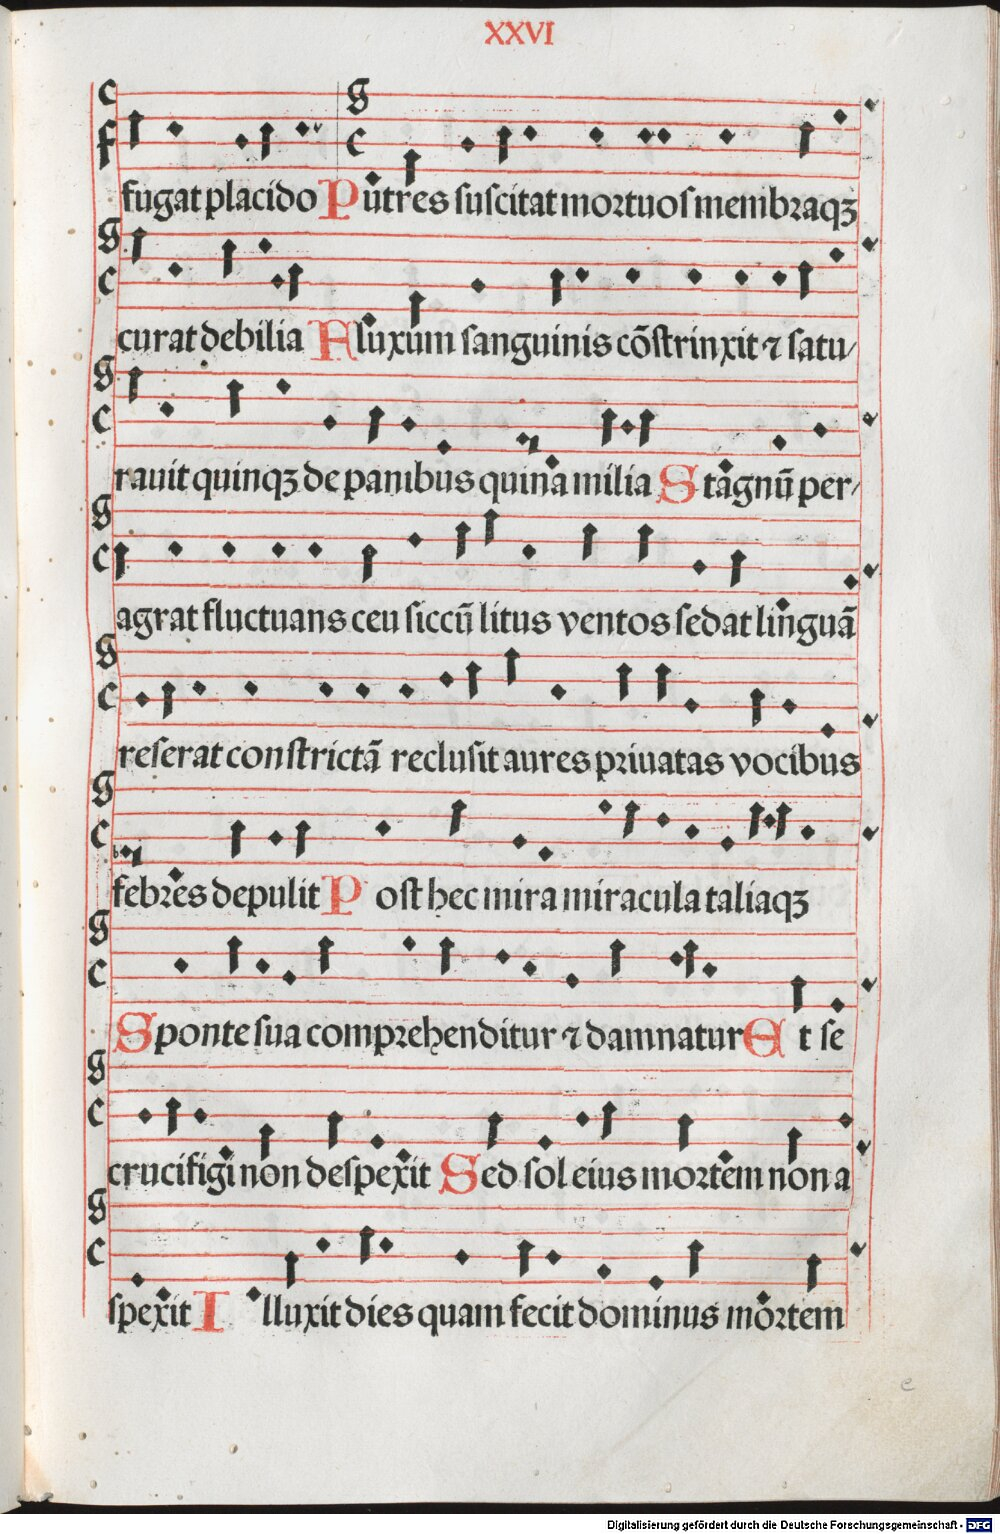 XXVI
fugat placido Putres suscitat mortuos membraqꝫ
curat debilia Fluxum sanguinis cõstrinxit ⁊ satu/
rauit quinqꝫ de panibus quina milia Stagnũ per/
agrat fluctuans ceu siccũ litus ventos sedat linguã
reserat constrictã reclusit aures priuatas vocibus
febres depulit Post hec mira miracula taliaqꝫ
Sponte sua comprehenditur ⁊ damnatur Et se
crucifigi non despexit Sed sol eius mortem non a
spexit Illuxit dies quam fecit dominus mortem
e
Digitalisierung gefördert durch die Deutsche Forschungsgemeinschaft - DFG